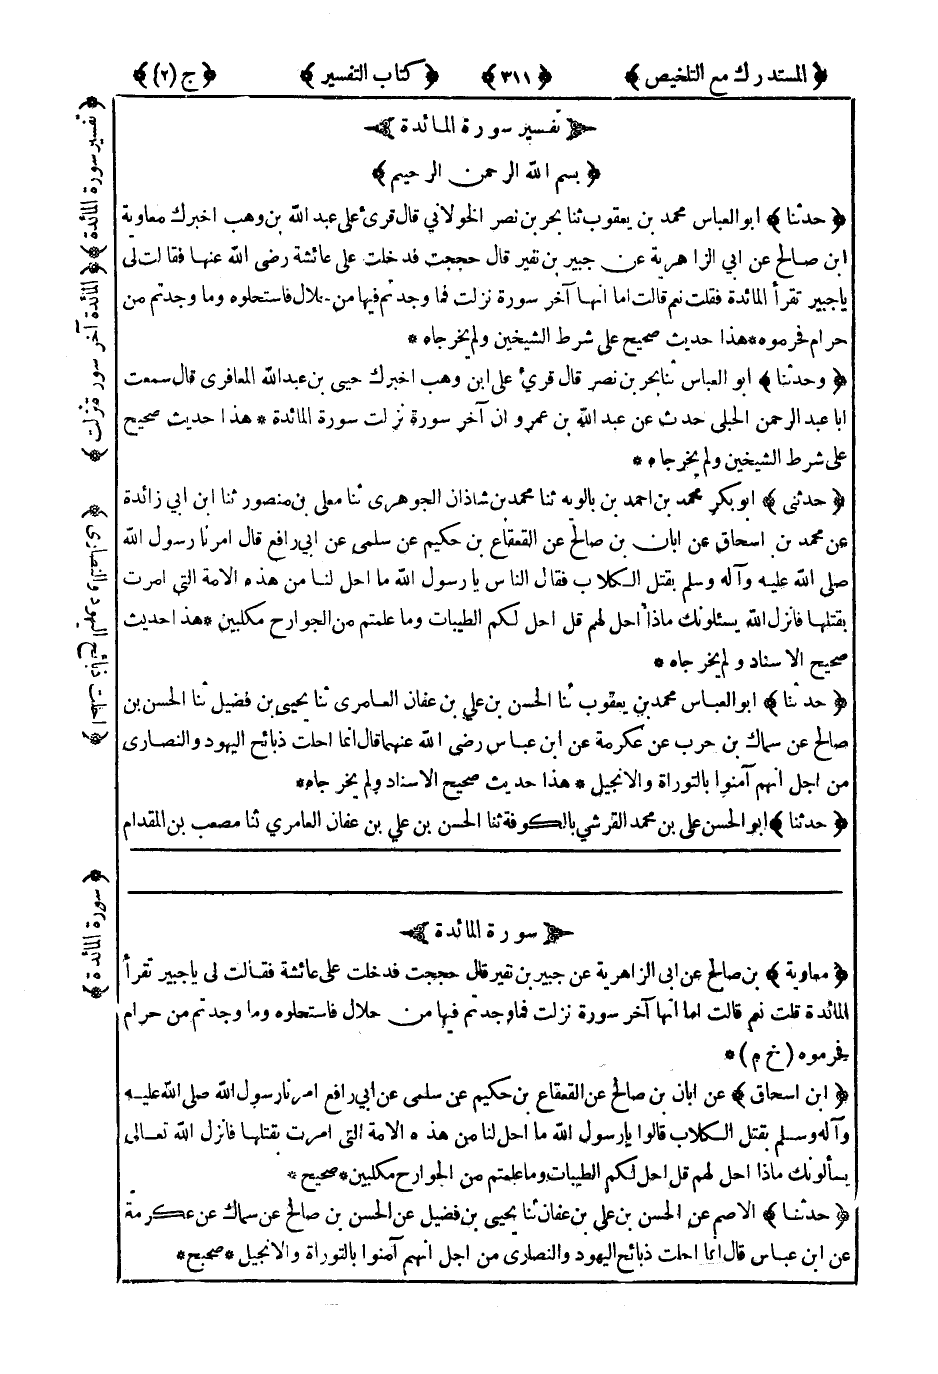 ﴿ المستدرك مع التلخيص ﴾ ﴿ ٣١١ ﴾ ﴿ كتاب التفسير ﴾ ﴿ ج (٢) ﴾
تفسير سورة المائدة
﴿ بسم الله الرحمن الرحيم ﴾
﴿ حدثنا ﴾ ابو العباس محمد بن يعقوب ثنا بحر بن نصر الخولاني قال قرئ على عبد الله بن وهب اخبرك معاوية
ابن صالح عن ابي الزاهرية عن جبير بن نفير قال حججت فدخلت على عائشة رضى الله عنها فقالت لى
ياجبير تقرأ المائدة فقلت نعم قالت اما انها آخر سورة نزلت فما وجدتم فيها من حلال فاستحلوه وما وجدتم من
حرام فحرموه * هذا حديث صحيح على شرط الشيخين ولم يخرجاه *
﴿ وحدثنا ﴾ ابو العباس ثنا بحر بن نصر قال قرئ على ابن وهب اخبرك حيى بن عبدالله المعافرى قال سمعت
ابا عبد الرحمن الحبلى حدث عن عبد الله بن عمرو ان آخر سورة نزلت سورة المائدة * هذا حديث صحيح
على شرط الشيخين ولم يخرجاه *
﴿ حدثنى ﴾ ابو بكر محمد بن احمد بن بالويه ثنا محمد بن شاذان الجوهرى ثنا معلى بن منصور ثنا ابن ابي زائدة
عن محمد بن اسحاق عن ابان بن صالح عن القعقاع بن حكيم عن سلمى عن ابي رافع قال امرنا رسول الله
صلى الله عليه وآله وسلم بقتل الكلاب فقال الناس يا رسول الله ما احل لنا من هذه الامة التى امرت
بقتلها فانزل الله يسئلونك ماذا احل لهم قل احل لكم الطيبات وما علمتم من الجوارح مكلبين * هذا حديث
صحيح الاسناد ولم يخرجاه *
﴿ حدثنا ﴾ ابو العباس محمد بن يعقوب ثنا الحسن بن علي بن عفان العامرى ثنا يحيى بن فضيل ثنا الحسن بن
صالح عن سماك بن حرب عن عكرمة عن ابن عباس رضى الله عنهما قال انما احلت ذبائح اليهود والنصارى
من اجل انهم آمنوا بالتوراة والانجيل * هذا حديث صحيح الاسناد ولم يخرجاه *
﴿ حدثنا ﴾ ابو الحسن على بن محمد القرشي بالكوفة ثنا الحسن بن علي بن عفان العامري ثنا مصعب بن المقدام
سورة المائدة
﴿ معاوية ﴾ بن صالح عن ابى الزاهرية عن جبير بن نفير قال حججت فدخلت على عائشة فقالت لى ياجبير تقرأ
المائدة قلت نعم قالت اما انها آخر سورة نزلت فما وجدتم فيها من حلال فاستحلوه وما وجدتم من حرام
فحرموه ( خ م ) *
﴿ ابن اسحاق ﴾ عن ابان بن صالح عن القعقاع بن حكيم عن سلمى عن ابي رافع امرنا رسول الله صلى الله عليه
وآله وسلم بقتل الكلاب قالوا يا رسول الله ما احل لنا من هذه الامة التى امرت بقتلها فانزل الله تعالى
يسألونك ماذا احل لهم قل احل لكم الطيبات وما علمتم من الجوارح مكلبين * صحيح *
﴿ حدثنا ﴾ الاصم عن الحسن بن علي بن عفان ثنا يحيى بن فضيل عن الحسن بن صالح عن سماك عن عكرمة
عن ابن عباس قال انما احلت ذبائح اليهود والنصارى من اجل انهم آمنوا بالتوراة والانجيل * صحيح *
﴿ تفسير سورة المائدة ﴾ ﴿ المائدة آخر سورة نزلت ﴾
﴿ احلت ذبائح اليهود والنصارى ﴾
﴿ سورة المائدة ﴾